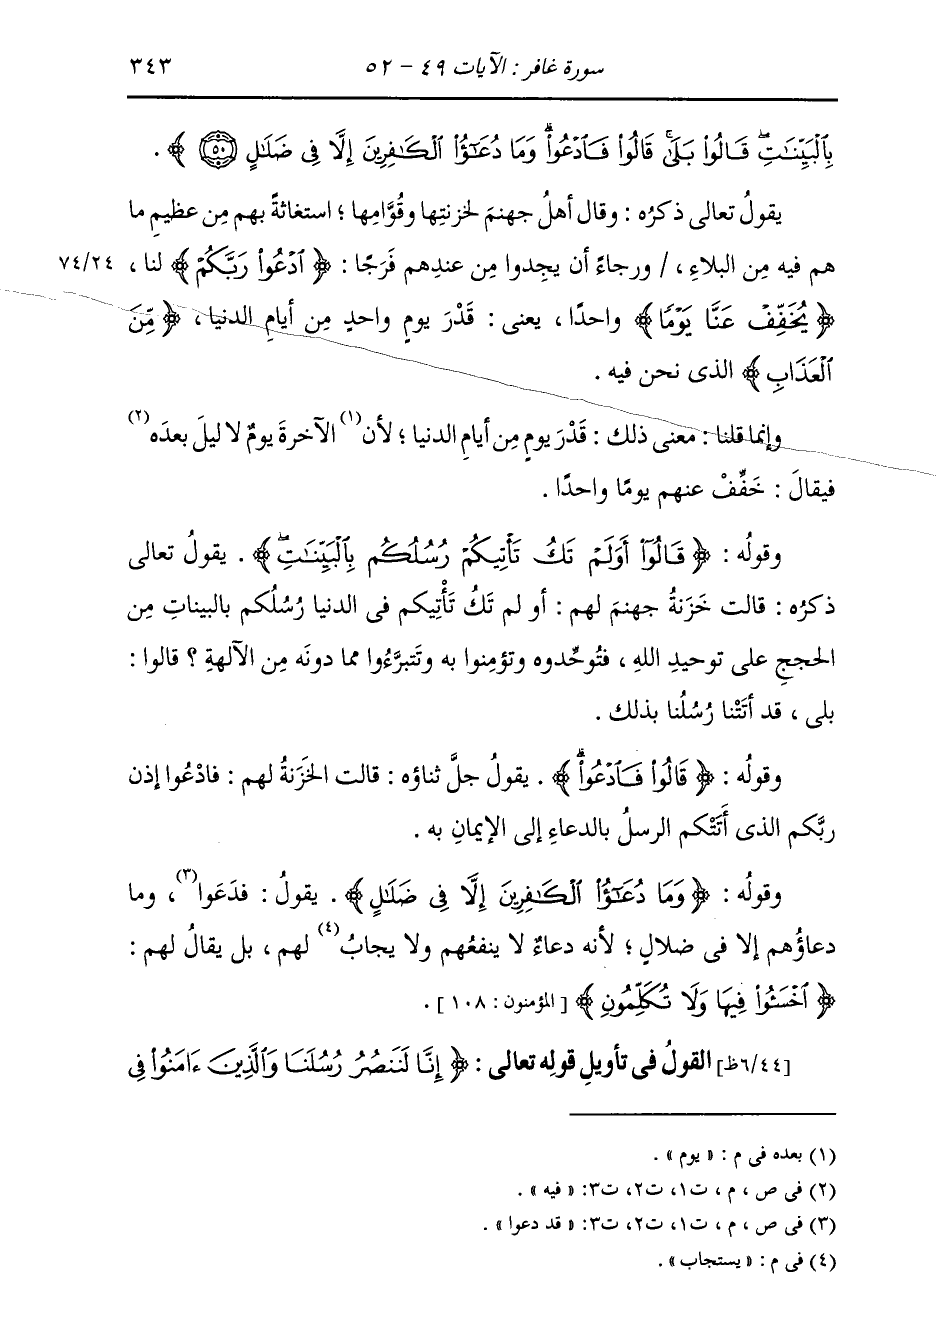 سورة غافر : الآيات ٤٩ - ٥٢ ٣٤٣
بِٱلْبَيِّنَٰتِۖ قَالُوا۟ بَلَىٰۚ قَالُوا۟ فَٱدْعُوا۟ۗ وَمَا دُعَٰٓؤُا۟ ٱلْكَٰفِرِينَ إِلَّا فِى ضَلَٰلٍ ﴿٥٠﴾ ﴾ .
يقولُ تعالى ذكرُه : وقال أهلُ جهنمَ لخزنتِها وقُوَّامِها ؛ استغاثةً بهم مِن عظيمِ ما
هم فيه مِن البلاءِ ، / ورجاءً أن يجِدوا مِن عندِهم فَرَجًا : ﴿ ٱدْعُوا۟ رَبَّكُمْ ﴾ لنا ، ٧٤/٢٤
﴿ يُخَفِّفْ عَنَّا يَوْمًا ﴾ واحدًا ، يعنى : قَدْرَ يومٍ واحدٍ مِن أيامِ الدنيا ، ﴿ مِّنَ
ٱلْعَذَابِ ﴾ الذى نحن فيه .
وإنما قلنا : معنى ذلك : قَدْرَ يومٍ مِن أيامِ الدنيا ؛ لأن(١) الآخرةَ يومٌ لا ليلَ بعدَه(٢)
فيقالَ : خَفِّفْ عنهم يومًا واحدًا .
وقولُه : ﴿ قَالُوٓا۟ أَوَلَمْ تَكُ تَأْتِيكُمْ رُسُلُكُم بِٱلْبَيِّنَٰتِۖ ﴾ . يقولُ تعالى
ذكرُه : قالت خَزَنةُ جهنمَ لهم : أو لم تَكُ تَأْتِيكم فى الدنيا رُسُلُكم بالبيناتِ مِن
الحججِ على توحيدِ اللهِ ، فتُوحِّدوه وتؤمِنوا به وتَتبرَّءُوا مما دونَه مِن الآلهةِ ؟ قالوا :
بلى ، قد أتَتْنا رُسُلُنا بذلك .
وقولُه : ﴿ قَالُوا۟ فَٱدْعُوا۟ۗ ﴾ . يقولُ جلَّ ثناؤه : قالت الخَزَنةُ لهم : فادْعُوا إذن
ربَّكم الذى أَتَتْكم الرسلُ بالدعاءِ إلى الإيمانِ به .
وقولُه : ﴿ وَمَا دُعَٰٓؤُا۟ ٱلْكَٰفِرِينَ إِلَّا فِى ضَلَٰلٍ ﴾ . يقولُ : فدَعَوا(٣) ، وما
دعاؤُهم إلا فى ضلالٍ ؛ لأنه دعاءٌ لا ينفعُهم ولا يجابُ(٤) لهم ، بل يقالُ لهم :
﴿ ٱخْسَـُٔوا۟ فِيهَا وَلَا تُكَلِّمُونِ ﴾ [ المؤمنون : ١٠٨ ] .
[٦/٤٤ظ] القولُ فى تأويلِ قولِه تعالى : ﴿ إِنَّا لَنَنصُرُ رُسُلَنَا وَٱلَّذِينَ ءَامَنُوا۟ فِى
(١) بعده فى م : « يوم » .
(٢) فى ص ، م ، ت١، ت٢، ت٣: « فيه » .
(٣) فى ص ، م ، ت١، ت٢، ت٣: « قد دعوا » .
(٤) فى م : « يستجاب » .